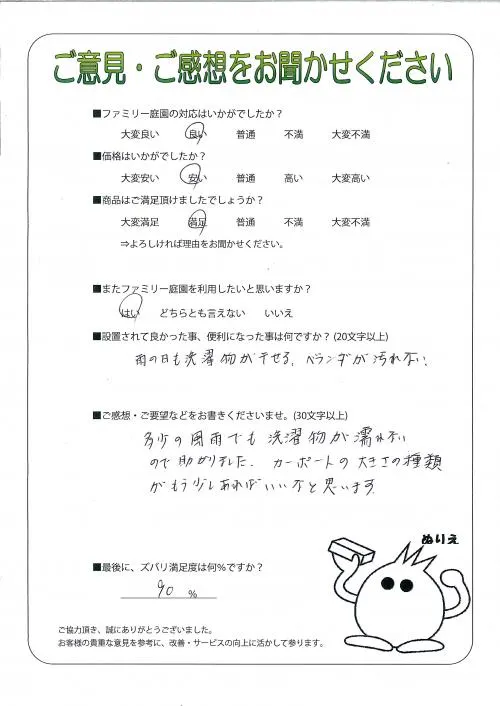 ご意見・ご感想をお聞かせください
■ファミリー庭園の対応はいかがでしたか？
大変良い 良い 普通 不満 大変不満
■価格はいかがでしたか？
大変安い 安い 普通 高い 大変高い
■商品はご満足頂けましたでしょうか？
大変満足 満足 普通 不満 大変不満
⇒よろしければ理由をお聞かせください。
■またファミリー庭園を利用したいと思いますか？
はい どちらとも言えない いいえ
■設置されて良かった事、便利になった事は何ですか？(20文字以上)
雨の日も洗濯物が干せる、ベランダが汚れない、
■ご感想・ご要望などをお書きくださいませ。(30文字以上)
多少の風雨でも洗濯物が濡れない
ので助かりました、カーポートの大きさの種類
がもう少しあればいいなと思います
ぬりえ
■最後に、ズバリ満足度は何％ですか？
90 ％
ご協力頂き、誠にありがとうございました。
お客様の貴重な意見を参考に、改善・サービスの向上に活かして参ります。